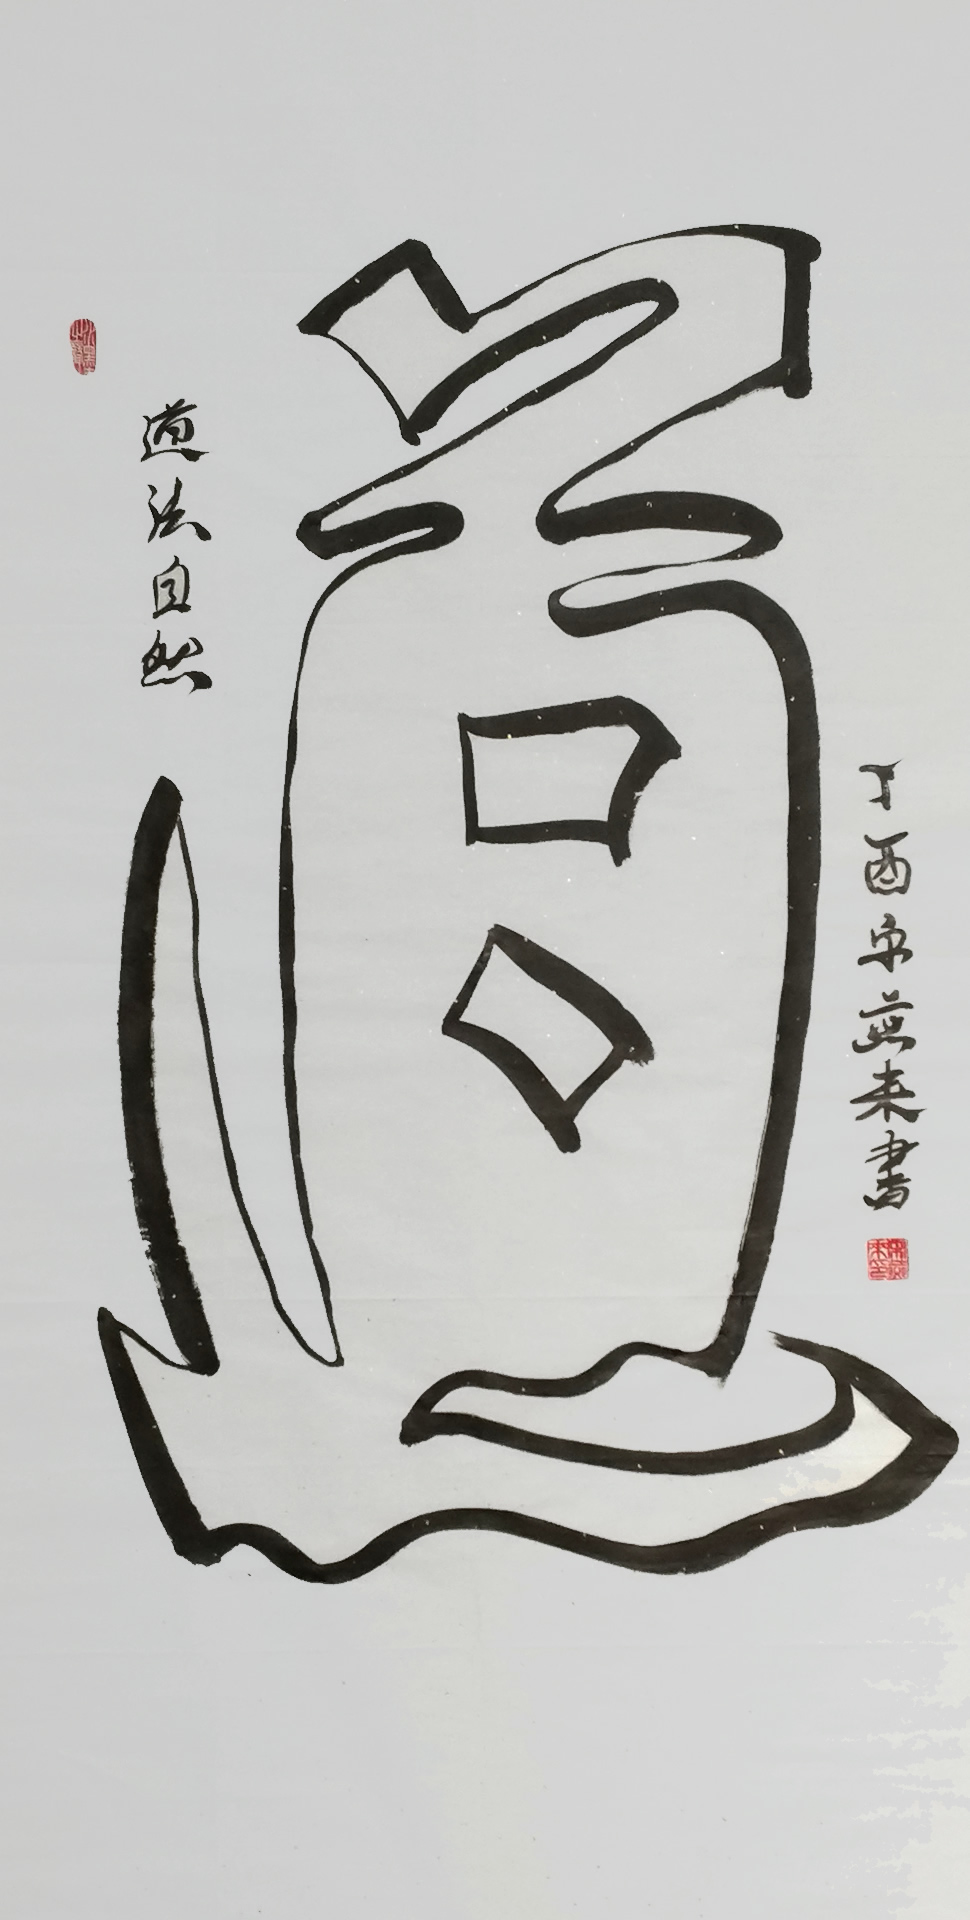 道
道法自然
丁酉宋燕来書